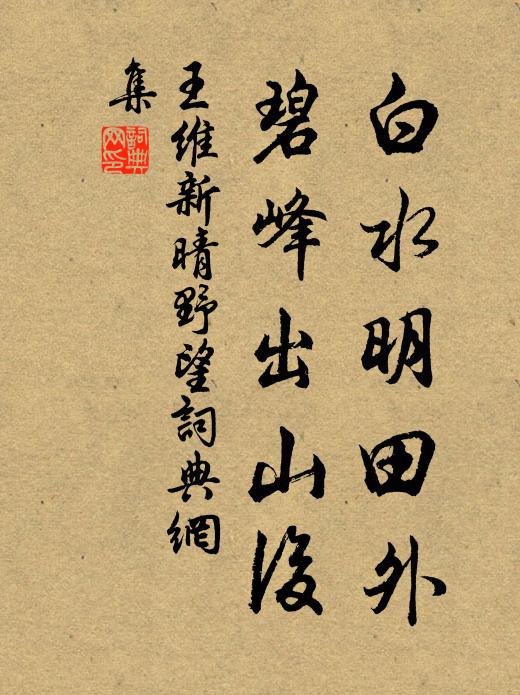 白水明田外
碧峰出山後
王維新晴野望詞典網
集
詞典
网印